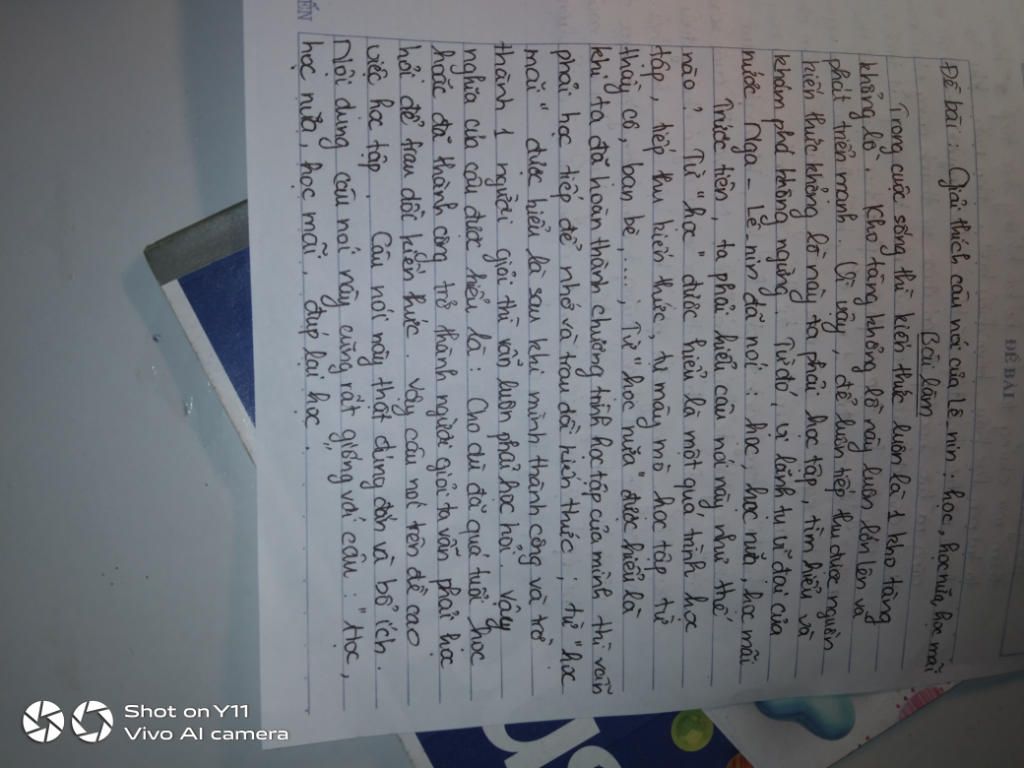 Đề bài: Giải thích câu nói của Lê-nin: học, học nữa, học mãi
Bài làm
Trong cuộc sống thì kiến thức luôn là 1 kho tàng
khổng lồ. Kho tàng khổng lồ này luôn lớn lên và
phát triển mạnh. Vì vậy, để luôn tiếp thu được nguồn
kiến thức khổng lồ này ta phải học tập, tìm hiểu và
khám phá không ngừng. Từ đó, vị lãnh tụ vĩ đại của
nước Nga - Lê nin đã nói: học, học nữa, học mãi
Trước tiên ta phải hiểu câu nói này như thế
nào? Từ "học" được hiểu là một quá trình học
tập, tiếp thu kiến thức, tự mày mò học tập từ
thầy cô, bạn bè,...; Từ "học nữa" được hiểu là
khi ta đã hoàn thành chương trình học tập của mình thì vẫn
phải học tiếp để nhớ và trau dồi kiến thức; từ "học
mãi" được hiểu là sau khi mình thành công và trở
thành 1 người giỏi thì vẫn luôn phải học hỏi. Vậy
nghĩa của câu được hiểu là: Cho dù đã quá tuổi học
hoặc đã thành công trở thành người giỏi ta vẫn phải học
hỏi để trau dồi kiến thức. Vậy câu nói trên đề cao
việc học tập. Câu nói này thật đúng đắn và bổ ích.
Nội dung câu nói này cũng rất giống với câu: "Học,
học nữa, học mãi, đúp lại học
ĐỀ BÀI
ẾN
Shot on Y11
Vivo AI camera